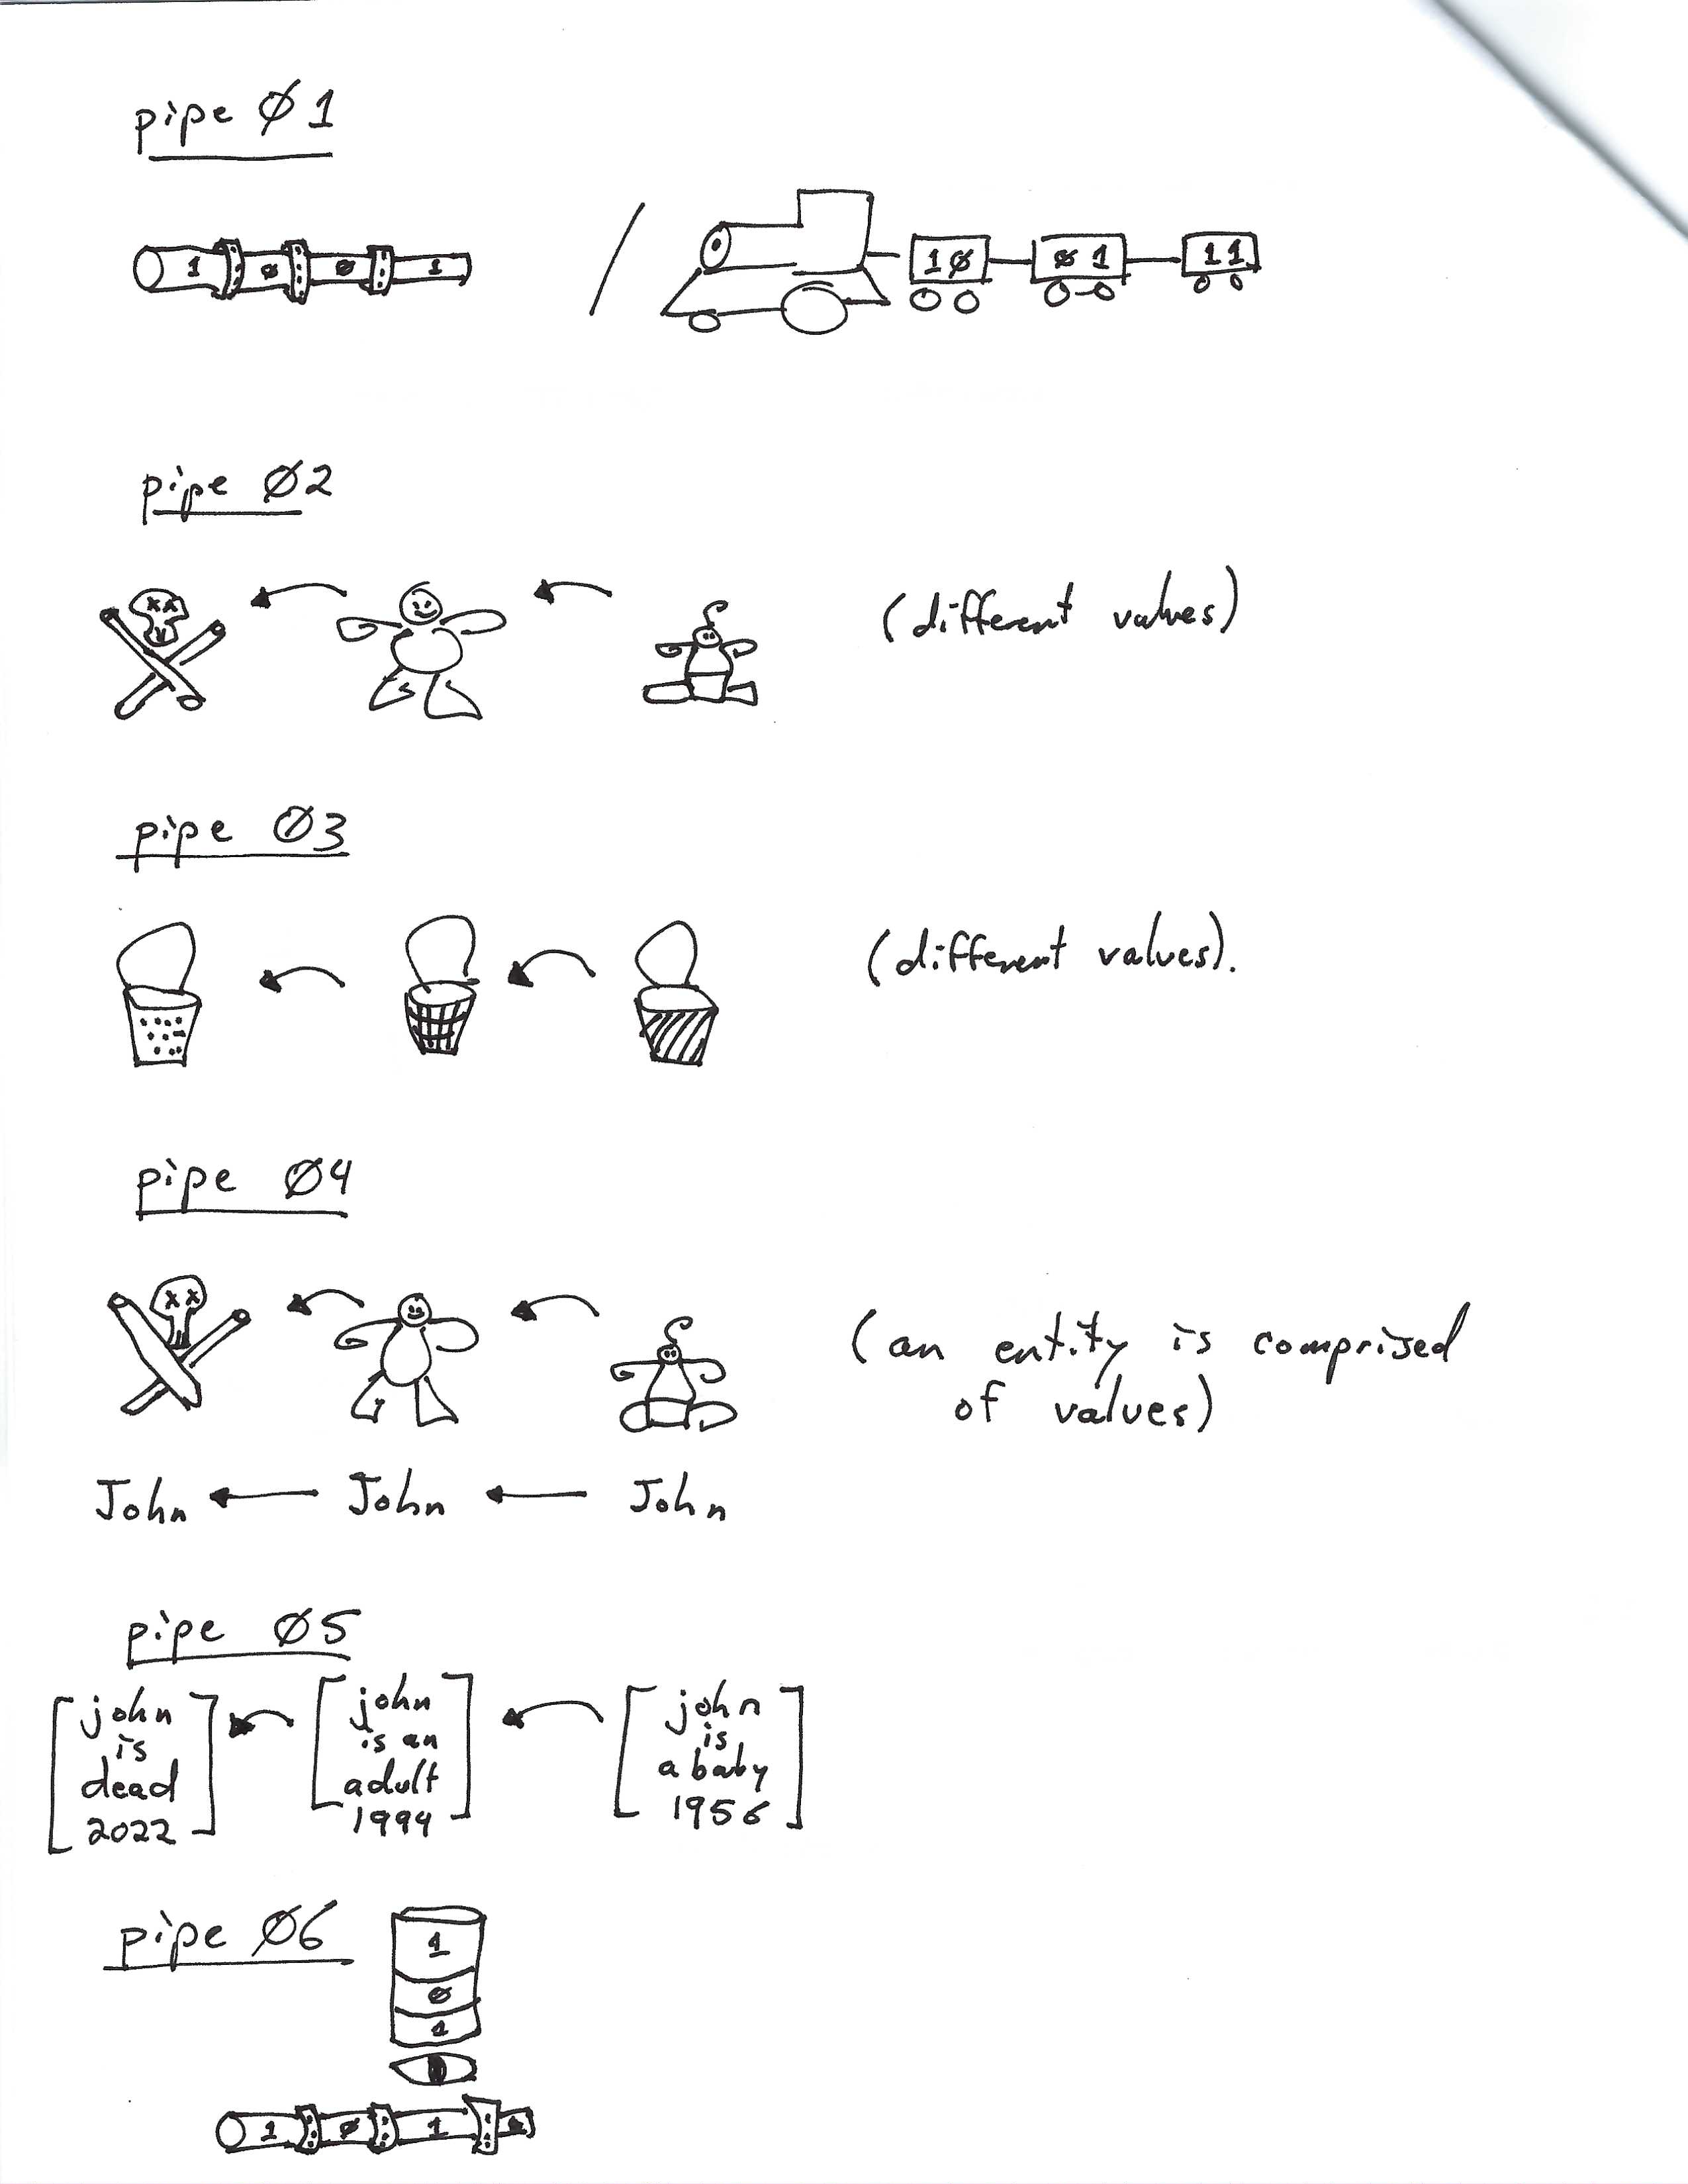 pipe Ø1
1 Ø Ø 1 / 1Ø Ø1 11
pipe Ø2
(different values)
pipe Ø3
(different values).
pipe Ø4
(an entity is comprised
of values)
John John John
pipe Ø5
john
is
dead
2022
john
is an
adult
1994
john
is
a baby
1956
pipe Ø6
1
Ø
1
1 Ø 1